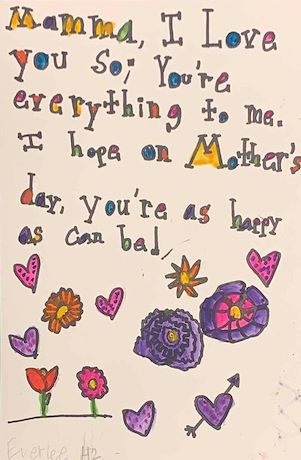 Mamma, I Love
you so; You're
everything to me.
I hope on Mother's
day, you're as happy
as can be!,
Everlee